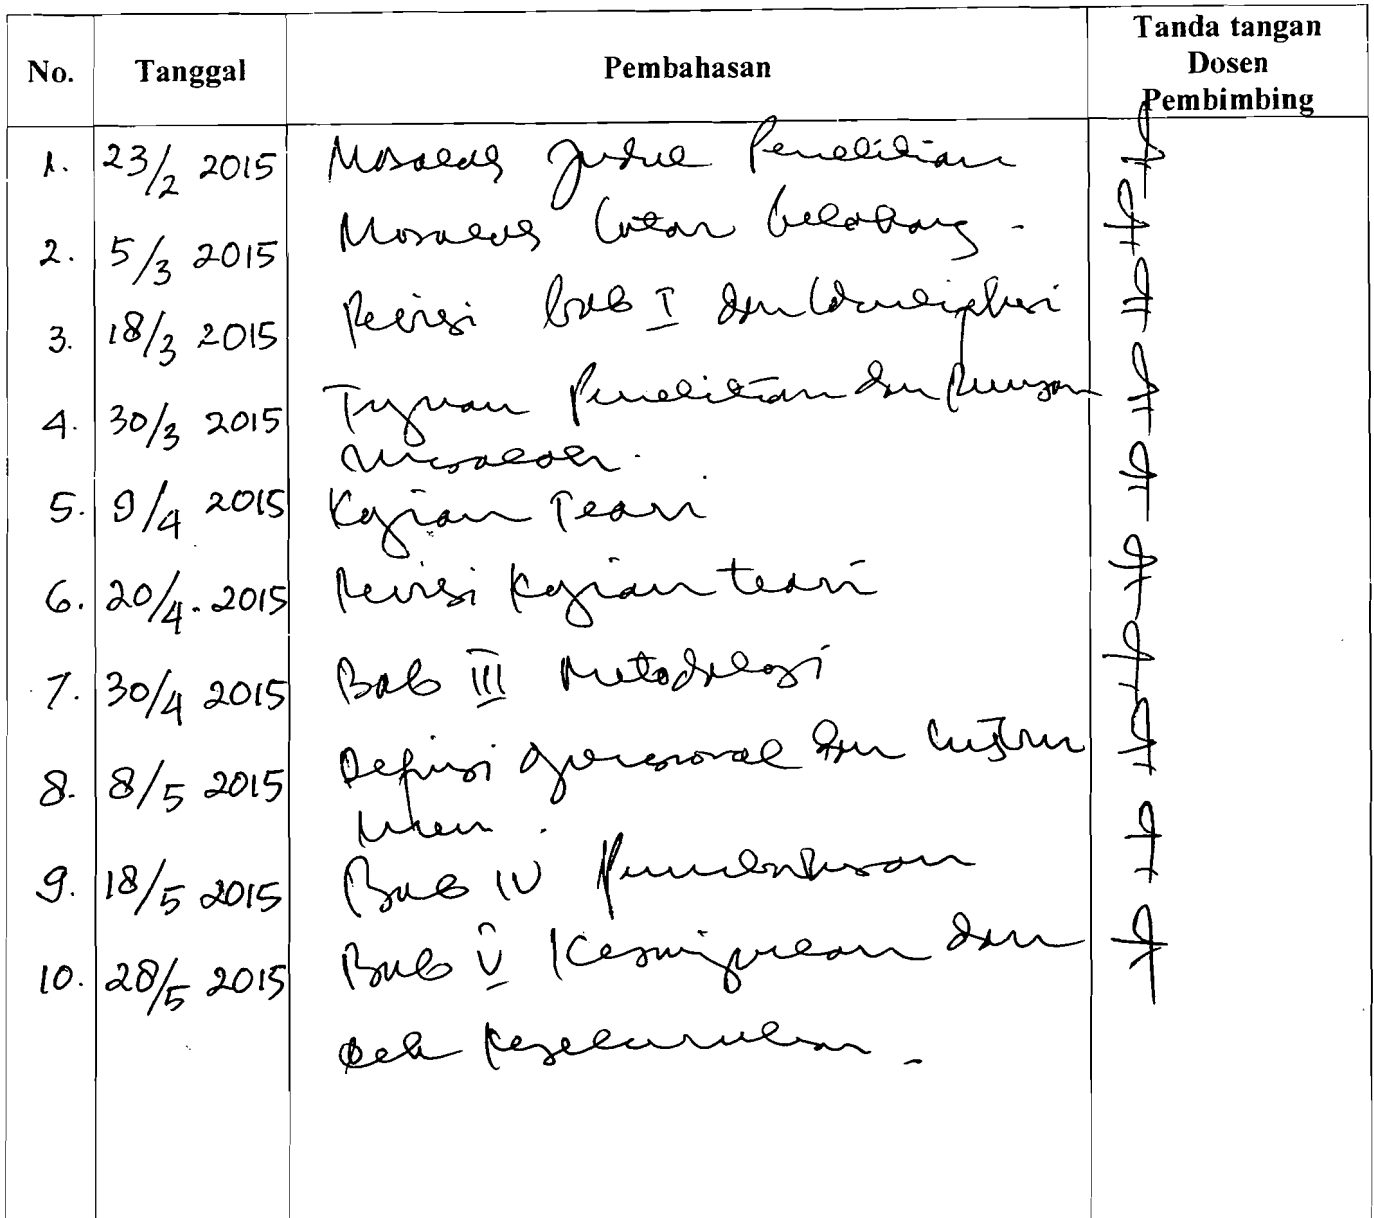 No. Tanggal Pembahasan Tanda tangan
Dosen
Pembimbing
1. 23/2 2015 Masalah Judul Penelitian
2. 5/3 2015 Masalah latar belakang.
3. 18/3 2015 Revisi bab I dan
4. 30/3 2015 Tujuan Penelitian dan Rumusan
masalah.
5. 9/4 2015 Kajian Teori
6. 20/4. 2015 Revisi Kajian teori
7. 30/4 2015 Bab III Metodologi
8. 8/5 2015 Definisi operasional dan Instru
men.
9. 18/5 2015 Bab IV Pembahasan
10. 28/5 2015 Bab V Kesimpulan dan
cek keseluruhan.